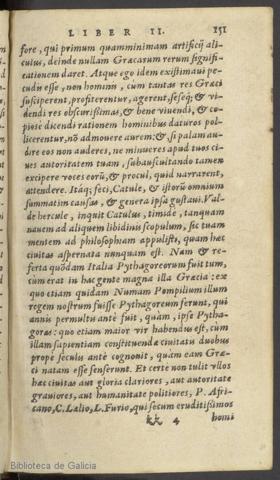 LIBER II. 151
fore, qui primum quamminimam artificij ali
culus, deinde nullam Græcarum rerum signifi-
cationem daret. Atque ego idem existimaui pe-
cudis esse, non hominis, cum tantas res Græci
susciperent, profiterentur, agerent, seseq́; & vi-
dendi res obscurissimas, & bene viuendi, & co-
piose dicendi rationem hominibus daturos pol-
licerentur, nõ admouere aurem: & si palam au-
dire eos non auderes, ne minueres apud tuos ci-
ues autoritatem tuam, subauscultando tamen
excipere voces eorũ, & procul, quid narrarent,
attendere. Itáq; feci, Catule, & istorũ omnium
summatim causas, & genera ipsa gustaui. Val-
de hercule, inquit Catulus, timide, tanquam
nauem ad aliquem libidinis scopulum, sic tuam
mentem ad philosophiam appulisti, quam hæc
ciuitas aspernata nunquam est. Nam & re-
ferta quõdam Italia Pythagoreorum fuit tum,
cum erat in hac gente magna illa Græcia: ex
quo etiam quidam Numam Pompilium illum
regem nostrum fuisse Pythagoreum ferunt, qui
annis permultu antè fuit, quàm, ipse Pytha-
goras: quo etiam maior vir habendus est, cùm
illam sapientiam constituendæ ciuitatis duobus
propè seculis antè cognouit, quàm eam Græ-
ci natam esse senserunt. Et certe non tulit vllos
hæc ciuitas aut gloria clariores, aut autoritate
grauiores, aut humanitate politiores, P. Afri-
cano, C. Lælio, L. Furio, qui secum eruditissimos
kk 4 homi
Biblioteca de Galicia